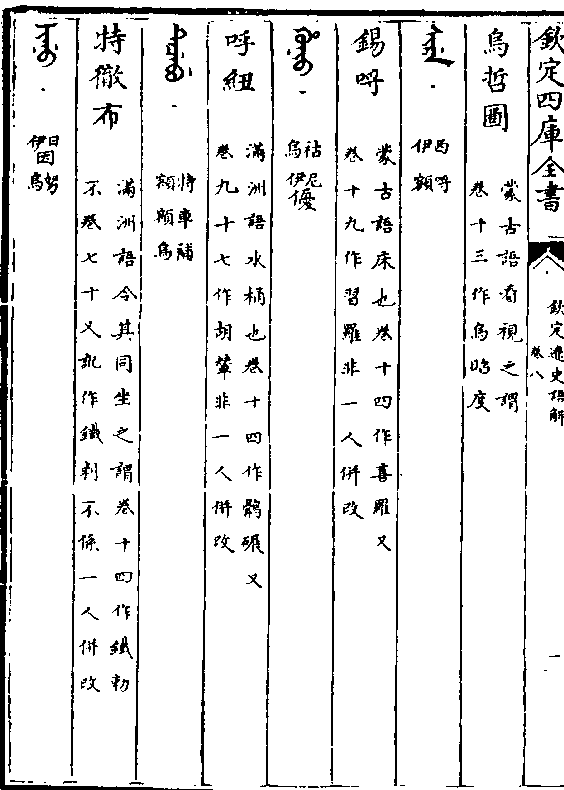 欽定四庫全書
欽定遼史語解
卷八
一
烏哲圖
蒙古語看視之謂
卷十三作烏昭度
西哷
伊額
錫哷
蒙古語床也卷十四作喜羅又
卷十九作習羅非一人併改
祜尼優
烏伊
呼紐
滿洲語水桶也卷十四作鶻碾又
卷九十七作胡輦非一人併改
特車補
額額烏
特徹布
滿洲語令其同坐之謂卷十四作鐵勑
不卷七十又訛作鐵剌不係一人併改
日因努
伊烏